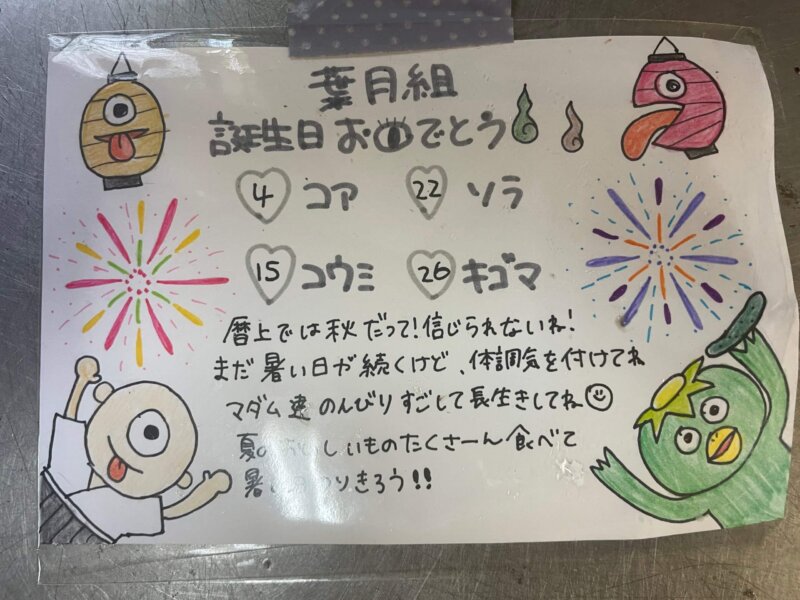 葉月組
誕生日おめでとう
4 コア 22 ソラ
15 コウミ 26 キゴマ
暦上では秋だって!信じられないね!
まだ暑い日が続くけど、体調気を付けてね
マダム達のんびりすごして長生きしてね
夏の しいものたくさーん食べて
暑 りきろう!!